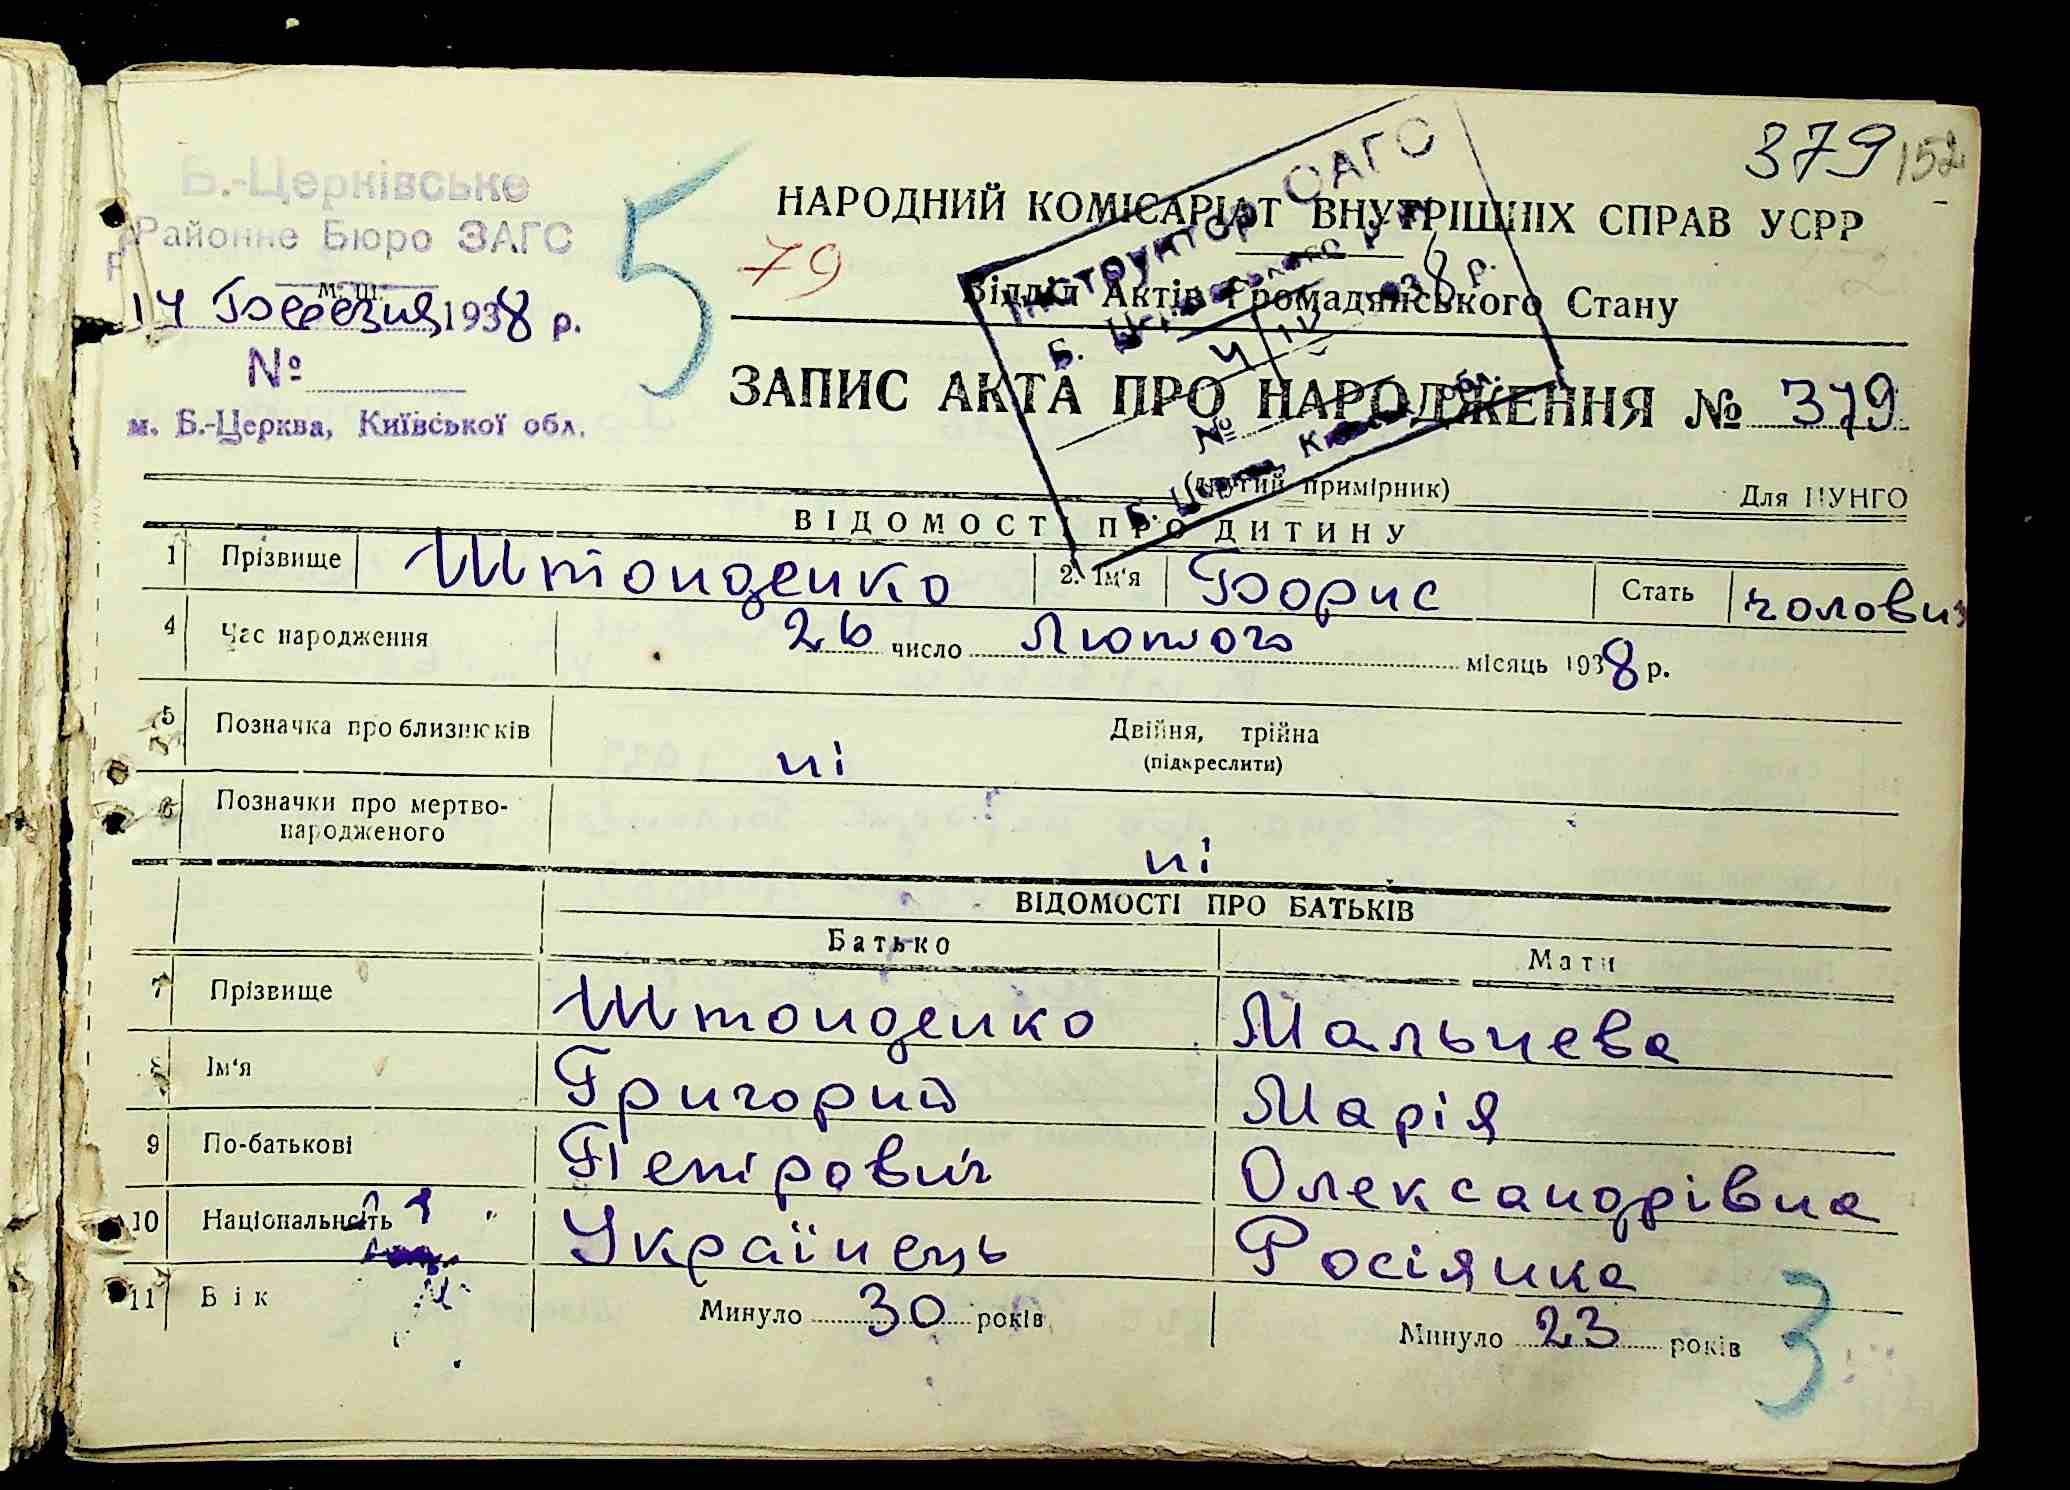 379 152
Б.-Церківське
Районне Бюро ЗАГС
м. ш.
14 Березня 1938 р.
№
м. Б.-Церква, Київської обл.
5
79
НАРОДНИЙ КОМІСАРІАТ ВНУТРІШНІХ СПРАВ УСРР
Відділ Актів Громадянського Стану
Інструктор ОАГС
4/IV 1938 р.
№
Б. Церква, Київськ. обл.
ЗАПИС АКТА ПРО НАРОДЖЕННЯ № 379
(другий примірник) Для ЦУНГО
ВІДОМОСТІ ПРО ДИТИНУ
1 Прізвище Штонденко 2. Ім'я Борис Стать чоловіч
4 Час народження 26 число Лютого місяць 1938 р.
5 Позначка про близнюків ні Двійня, трійна
(підкреслити)
6 Позначки про мертво-
народженого ні
ВІДОМОСТІ ПРО БАТЬКІВ
Батько Мати
7 Прізвище Штонденко Мальцева
8 Ім'я Григорий Марія
9 По-батькові Петрович Олександрівна
10 Національність Українець Росіянка
11 Вік Минуло 30 років Минуло 23 років
3